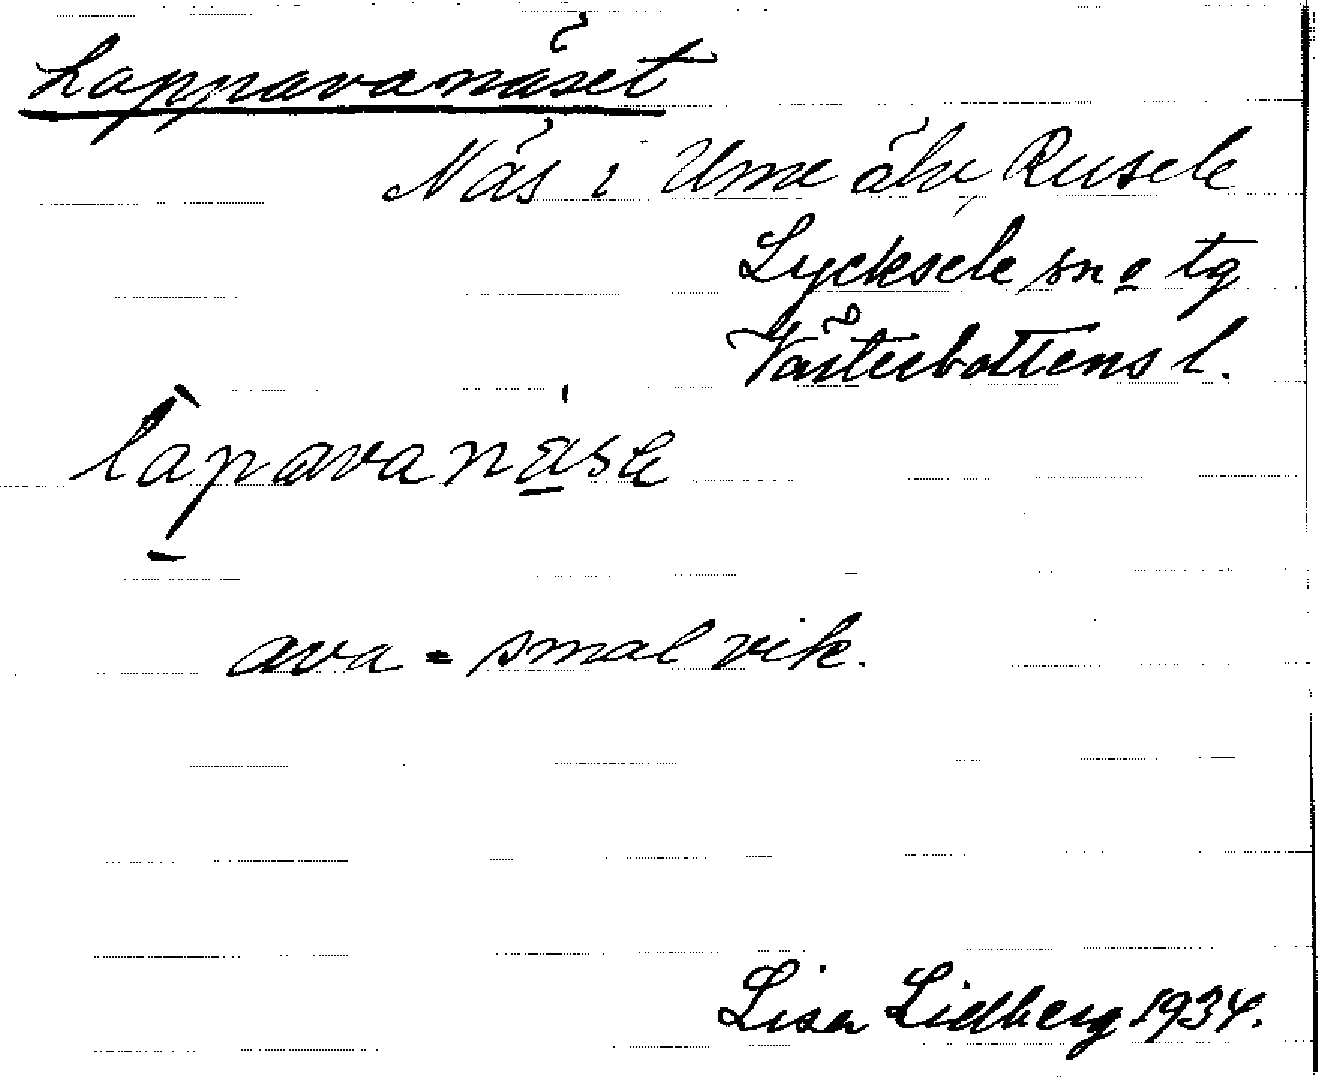 Lappavanäset
Näs i Ume älv, Rusele
Lycksele sn o tg
Västerbottens l.
lapavanase
ava = smal vik.
Lisa Lidberg 1934.